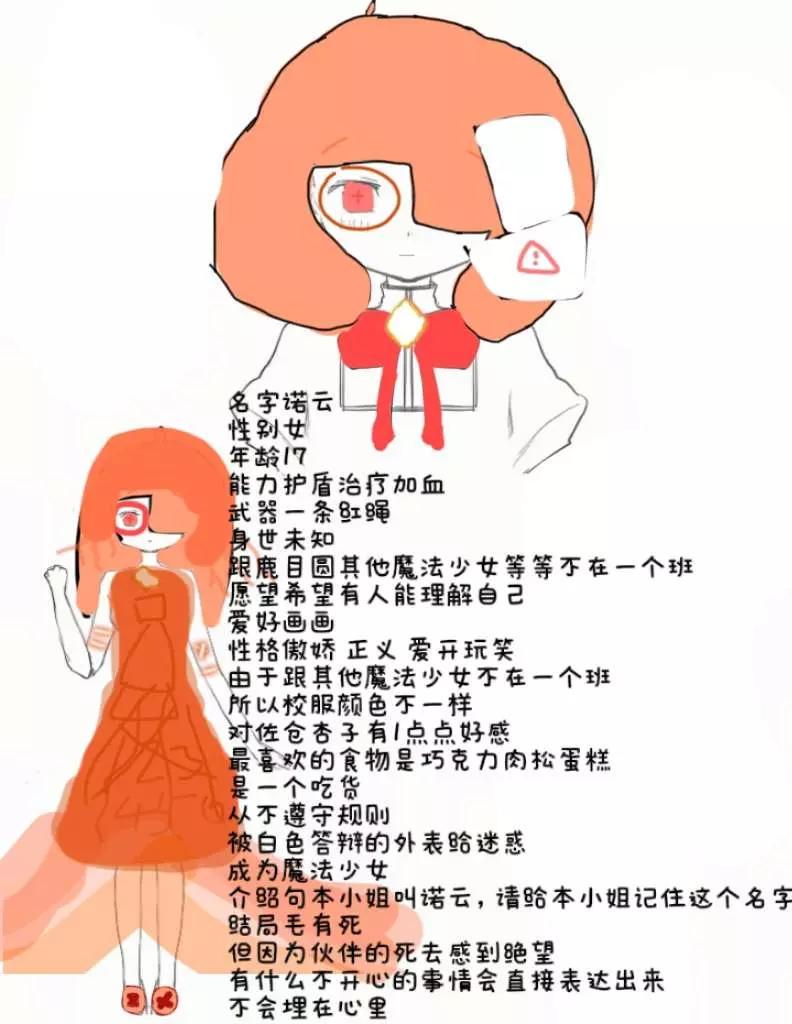 名字诺云
性别女
年龄17
能力护盾治疗加血
武器一条红绳
身世未知
跟鹿目圆其他魔法少女等等不在一个班
愿望希望有人能理解自己
爱好画画
性格傲娇 正义 爱开玩笑
由于跟其他魔法少女不在一个班
所以校服颜色不一样
对佐仓杏子有1点点好感
最喜欢的食物是巧克力肉松蛋糕
是一个吃货
从不遵守规则
被白色答辩的外表给迷惑
成为魔法少女
介绍句本小姐叫诺云，请给本小姐记住这个名字
结局毛有死
但因为伙伴的死去感到绝望
有什么不开心的事情会直接表达出来
不会埋在心里